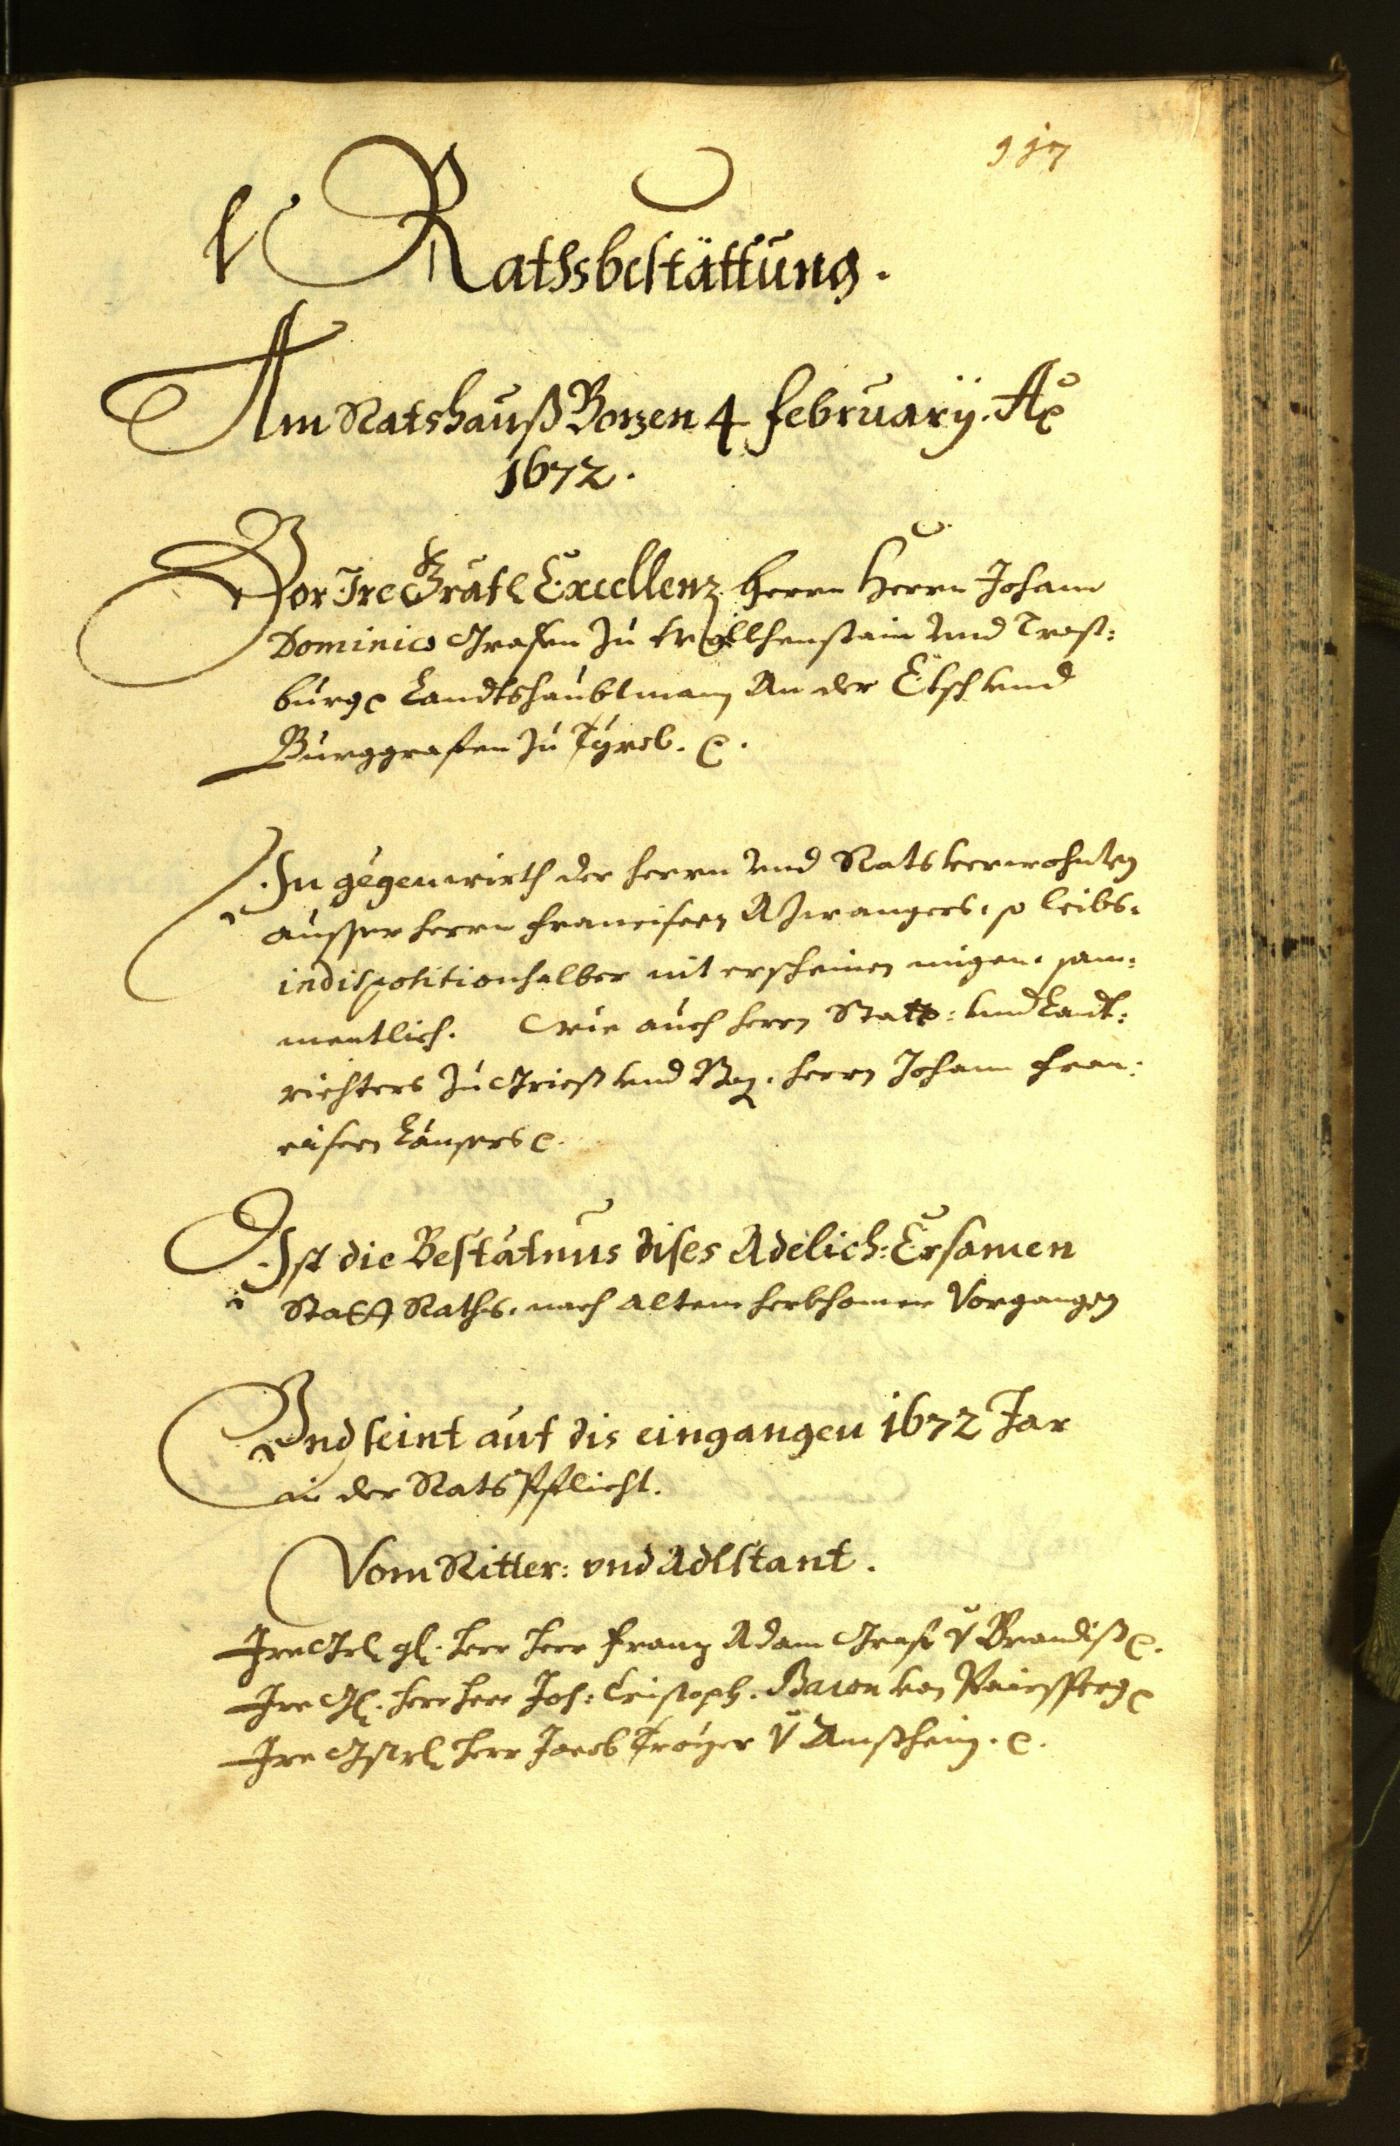 917
Rathsbestättung.
Am Ratshauß Bozen 4 february. Ao
1672.
Vor Ire Gräfl Excellenz herrn Herrn Johann
Dominico Grafen zu Wolkhenstain und Trost=
burg Landtshaubtman An der Etsch und
Burggrafen zu Tyrol. e.
In gegenwirth der herrn und Rats verwohnten
ausser herrn Franciscen A Zwangers, so leibs=
indispositionhalber nit erscheinen mügen. sam=
mentlich. Wie auch herrn Statt= und Landt=
richters zu Grieß und Boz. herrn Johann Fran=
ciscen
Ist die Bestätnus dises Adelich: Ersamen
Statt Raths. nach altem herkhomen Vorgangen
Und seint auf dis eingangen 1672 Jar
in der Rats Pflicht.
Vom Ritter: und Adlstant.
Ire gl. herr herr Franz Adam Graf v Brandiß e.
Ire Gl. herr herr Joh: Cristoph. Baron von Paiersperg e
Ire herr Jacob Troyer v e.